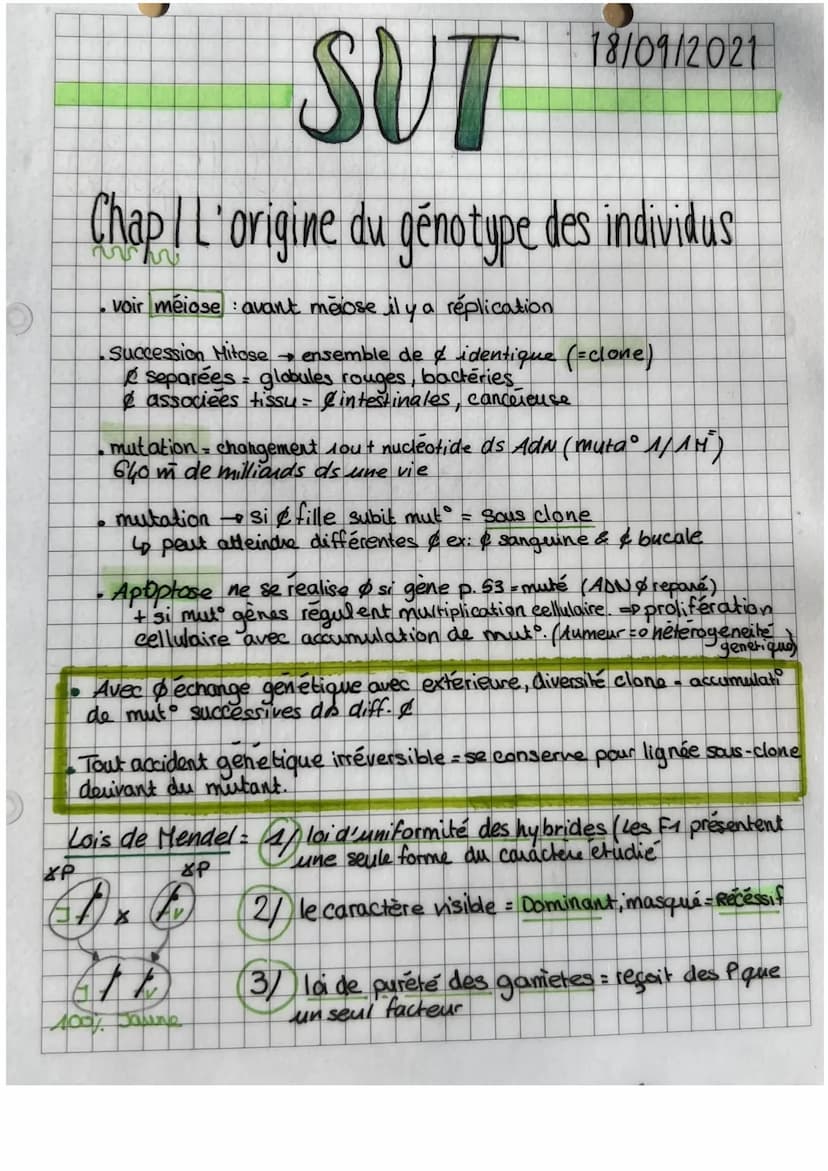 SVT
18/09/2021
Chap 1 L'origine du génotype des individus
. voir méiose : avant méiose il y a réplication
. Succession Mitose → ensemble de ₵ identique (=clone)
₵ separées = globules rouges, bactéries
₵ associées tissu = ₵ intestinales, cancéreuse
. mutation = changement 1 ou + nucléotide ds ADN (muta° 1/1M
640 m de milliards ds une vie
. mutation → si ₵ fille subit mut° = sous clone
↳ peut atteindre différentes ₵ ex: ₵ sanguine & ₵ bucale
. Apoptose ne se réalise Ø si gène p.53 = muté (ADN Ø reparé)
+ si mut° gènes régulent multiplication cellulaire. => prolifération
cellulaire avec accumulation de mut°. (tumeur => hétérogeneité
genetique)
. Avec Ø échange génétique avec extérieure, diversité clone = accumulat°
de mut° successives ds diff. ₵
. Tout accident génetique irréversible = se conserve pour lignée sous-clone
derivant du mutant.
Lois de Mendel = 1/ loi d'uniformité des hybrides (Les F1 présentent
une seule forme du caractère etudié
XP XP
J x v
2/ le caractère visible = Dominant, masqué = Récéssif
J v
3/ loi de pureté des gametes = reçoit des P que
un seul facteur
100% Jaune